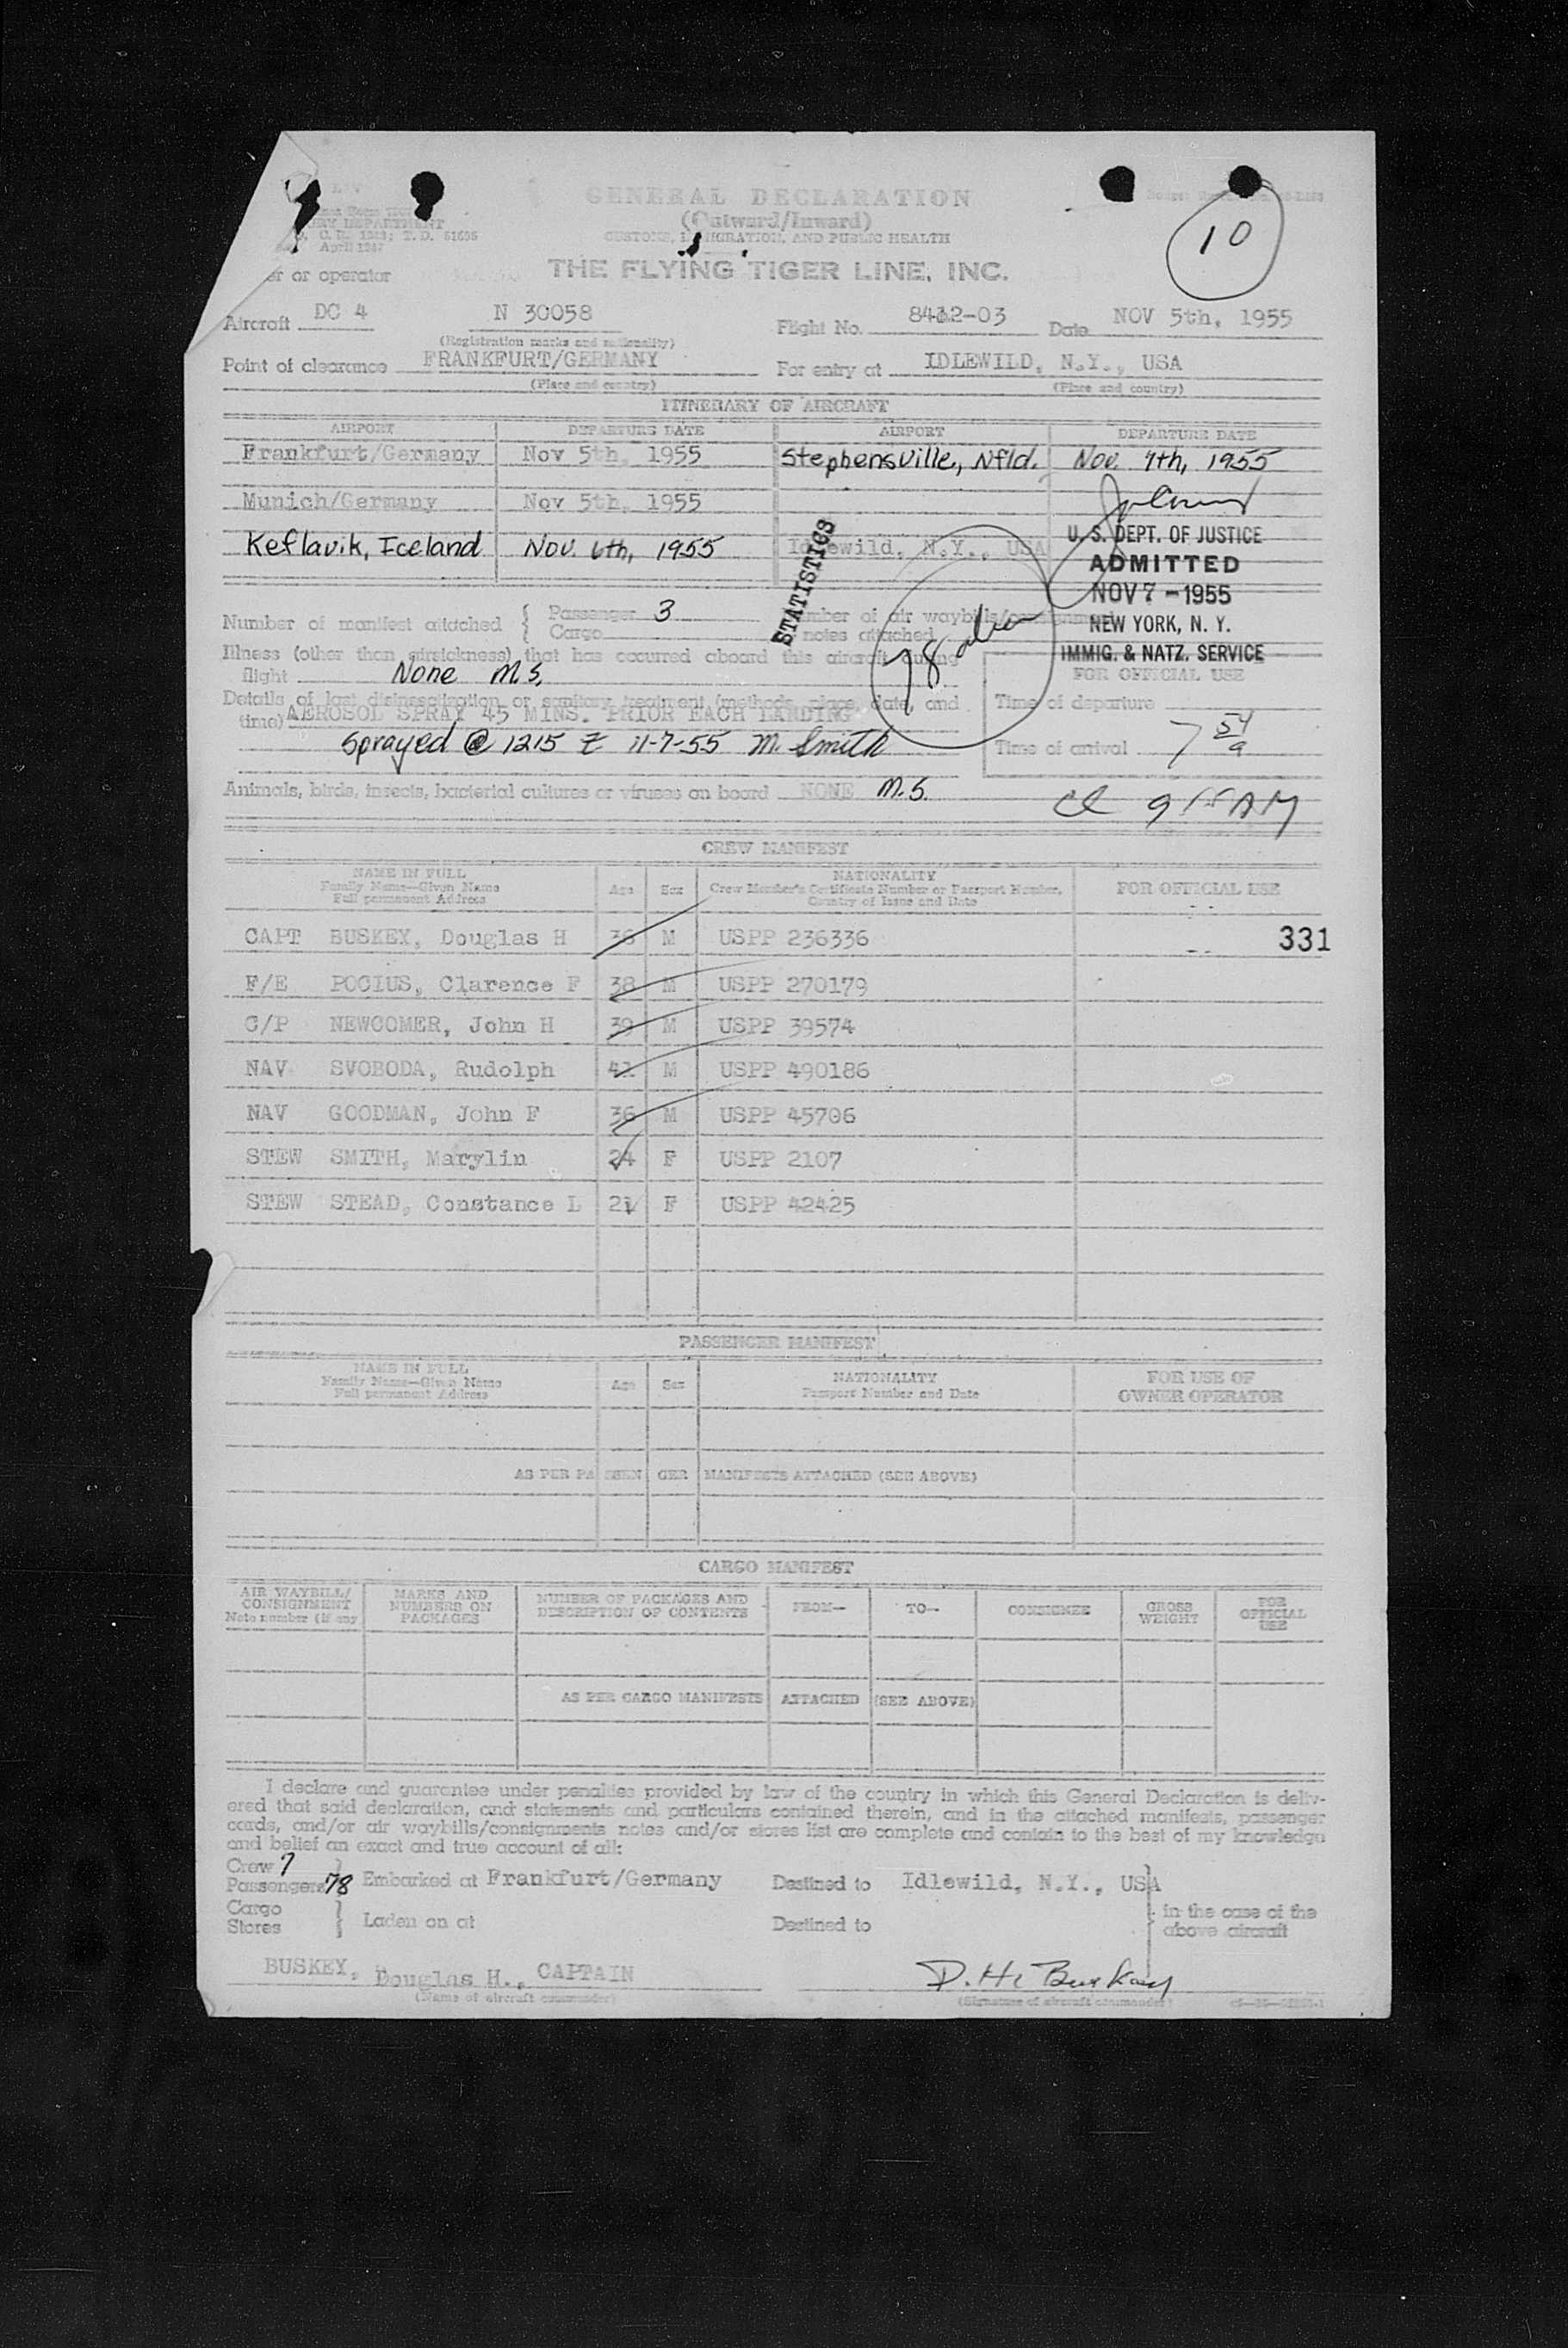 GENERAL DECLARATION
(Outward/Inward)
CUSTOMS, IMMIGRATION, AND PUBLIC HEALTH
April 1947
10
or operator THE FLYING TIGER LINE, INC.
Aircraft DC 4 N 30058 Flight No. Date NOV 5th, 1955
(Registration marks and nationality)
Point of clearance FRANKFURT/GERMANY For entry at IDLEWILD, N.Y., USA
(Place and country) (Place and country)
ITINERARY OF AIRCRAFT
AIRPORT DEPARTURE DATE AIRPORT DEPARTURE DATE
Frankfurt/Germany Nov 5th, 1955 Stephensville, Nfld. Nov. 7th, 1955
Munich/Germany Nov 5th, 1955
Keflavik, Iceland Nov. 6th, 1955 Idlewild, N.Y., USA
U. S. DEPT. OF JUSTICE
ADMITTED
NOV 7 - 1955
NEW YORK, N. Y.
IMMIG. & NATZ. SERVICE
STATISTICS
Number of manifest attached { Passenger 3 Number of air waybills/consignment
Cargo notes attached
Illness (other than airsickness) that has occurred aboard this aircraft during
flight None M.S.
78
FOR OFFICIAL USE
Details of last disinsectization or sanitary treatment (methods, place, date, and
time) AEROSOL SPRAY 45 MINS. PRIOR EACH LANDING
Time of departure
Sprayed @ 1215 Z 11-7-55 M. Smith
Time of arrival 7 54 a
Animals, birds, insects, bacterial cultures or viruses on board NONE M.S.
CREW MANIFEST
NAME IN FULL
Family Name—Given Name
Full permanent Address
Age Sex
NATIONALITY
Crew Member's Certificate Number or Passport Number,
Country of Issue and Date
FOR OFFICIAL USE
CAPT BUSKEY, Douglas H 36 M USPP 236336 331
F/E POCIUS, Clarence F 38 M USPP 270179
C/P NEWCOMER, John H 39 M USPP 39574
NAV SVOBODA, Rudolph 41 M USPP 490186
NAV GOODMAN, John F 36 M USPP 45706
STEW SMITH, Marylin 24 F USPP 2107
STEW STEAD, Constance L 21 F USPP 42425
PASSENGER MANIFEST
NAME IN FULL
Family Name—Given Name
Full permanent Address
Age Sex
NATIONALITY
Passport Number and Date
FOR USE OF
OWNER OPERATOR
AS PER PASSENGER MANIFESTS ATTACHED (SEE ABOVE)
CARGO MANIFEST
AIR WAYBILL/
CONSIGNMENT
Note number (if any
MARKS AND
NUMBERS ON
PACKAGES
NUMBER OF PACKAGES AND
DESCRIPTION OF CONTENTS
FROM— TO— CONSIGNEE
GROSS
WEIGHT
FOR
OFFICIAL
USE
AS PER CARGO MANIFESTS ATTACHED (SEE ABOVE)
I declare and guarantee under penalties provided by law of the country in which this General Declaration is deliv-
ered that said declaration, and statements and particulars contained therein, and in the attached manifests, passenger
cards, and/or air waybills/consignments notes and/or stores list are complete and contain to the best of my knowledge
and belief an exact and true account of all:
Crew 7
Passengers 78 } Embarked at Frankfurt/Germany Destined to Idlewild, N.Y., USA
Cargo
Stores } Laden on at Destined to
in the case of the
above aircraft
BUSKEY, Douglas H., CAPTAIN D. H. Buskey
(Name of aircraft commander) (Signature of aircraft commander)